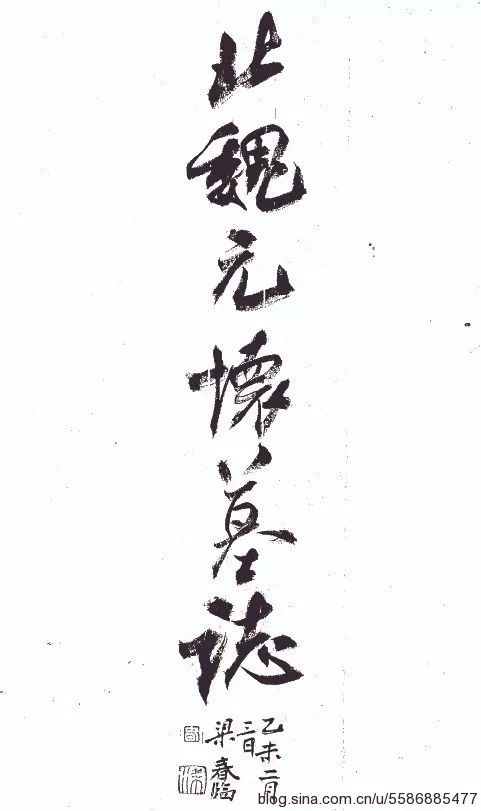 北魏元懷墓誌
乙未二月
二日
梁春臨
blog.sina.com.cn/u/5586885477